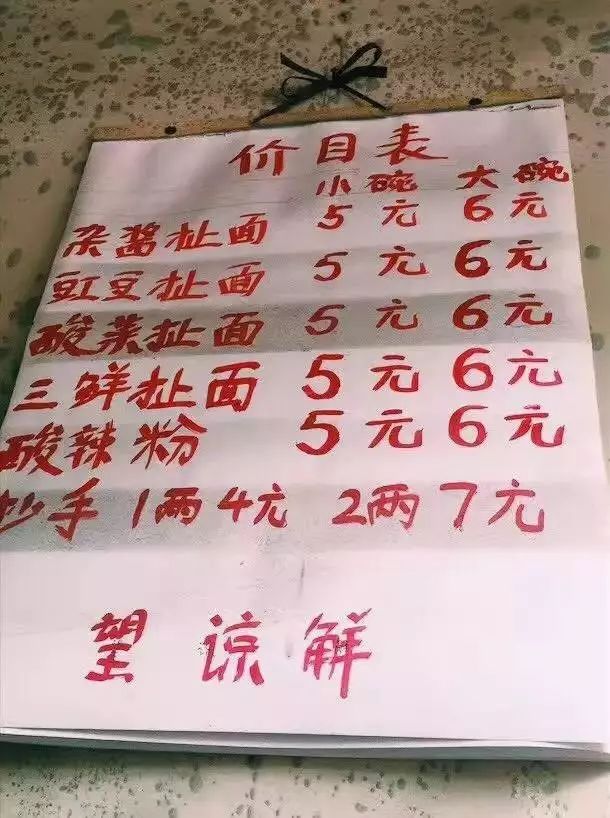 价目表
小碗 大碗
杂酱扯面 5元 6元
豇豆扯面 5元 6元
酸菜扯面 5元 6元
三鲜扯面 5元 6元
酸辣粉 5元 6元
抄手 1两4元 2两7元
望谅解